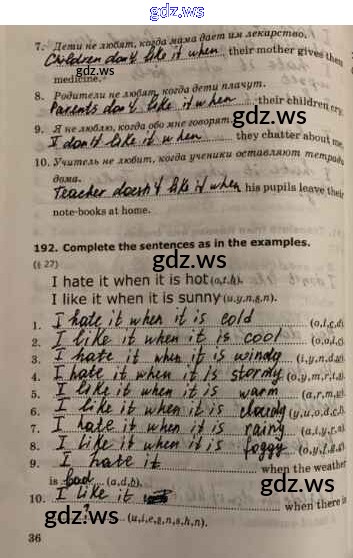 gdz.ws
7. Дети не любят, когда мама дает им лекарство.
Children don't like it when their mother gives them
medicine.
8. Родители не любят, когда дети плачут.
Parents don't like it when their children cry.
9. Я не люблю, когда обо мне говорят
I don't like it when they chatter about me.
10. Учитель не любит, когда ученики оставляют тетради
дома.
Teacher doesn't like it when his pupils leave their
note-books at home.
192. Complete the sentences as in the examples.
(§ 27)
gdz.ws
I hate it when it is hot (o,t,h).
I like it when it is sunny (u,y,n,s,n).
1. I hate it when it is cold (o,l,c,d).
2. I like it when it is cool (o,o,l,c).
3. I hate it when it is windy (i,y,n,d,w).
4. I hate it when it is stormy (o,y,m,r,t,s).
5. I like it when it is warm (a,r,m,w).
6. I like it when it is cloudy (y,u,o,d,c,l).
7. I hate it when it is rainy
8. I like it when it is foggy (o,y,f,g,g).
9. I hate it when the weather
is bad (a,d,b).
10. I like it when there is
(u,i,e,s,n,s,h,n).
36
gdz.ws
gdz.ws